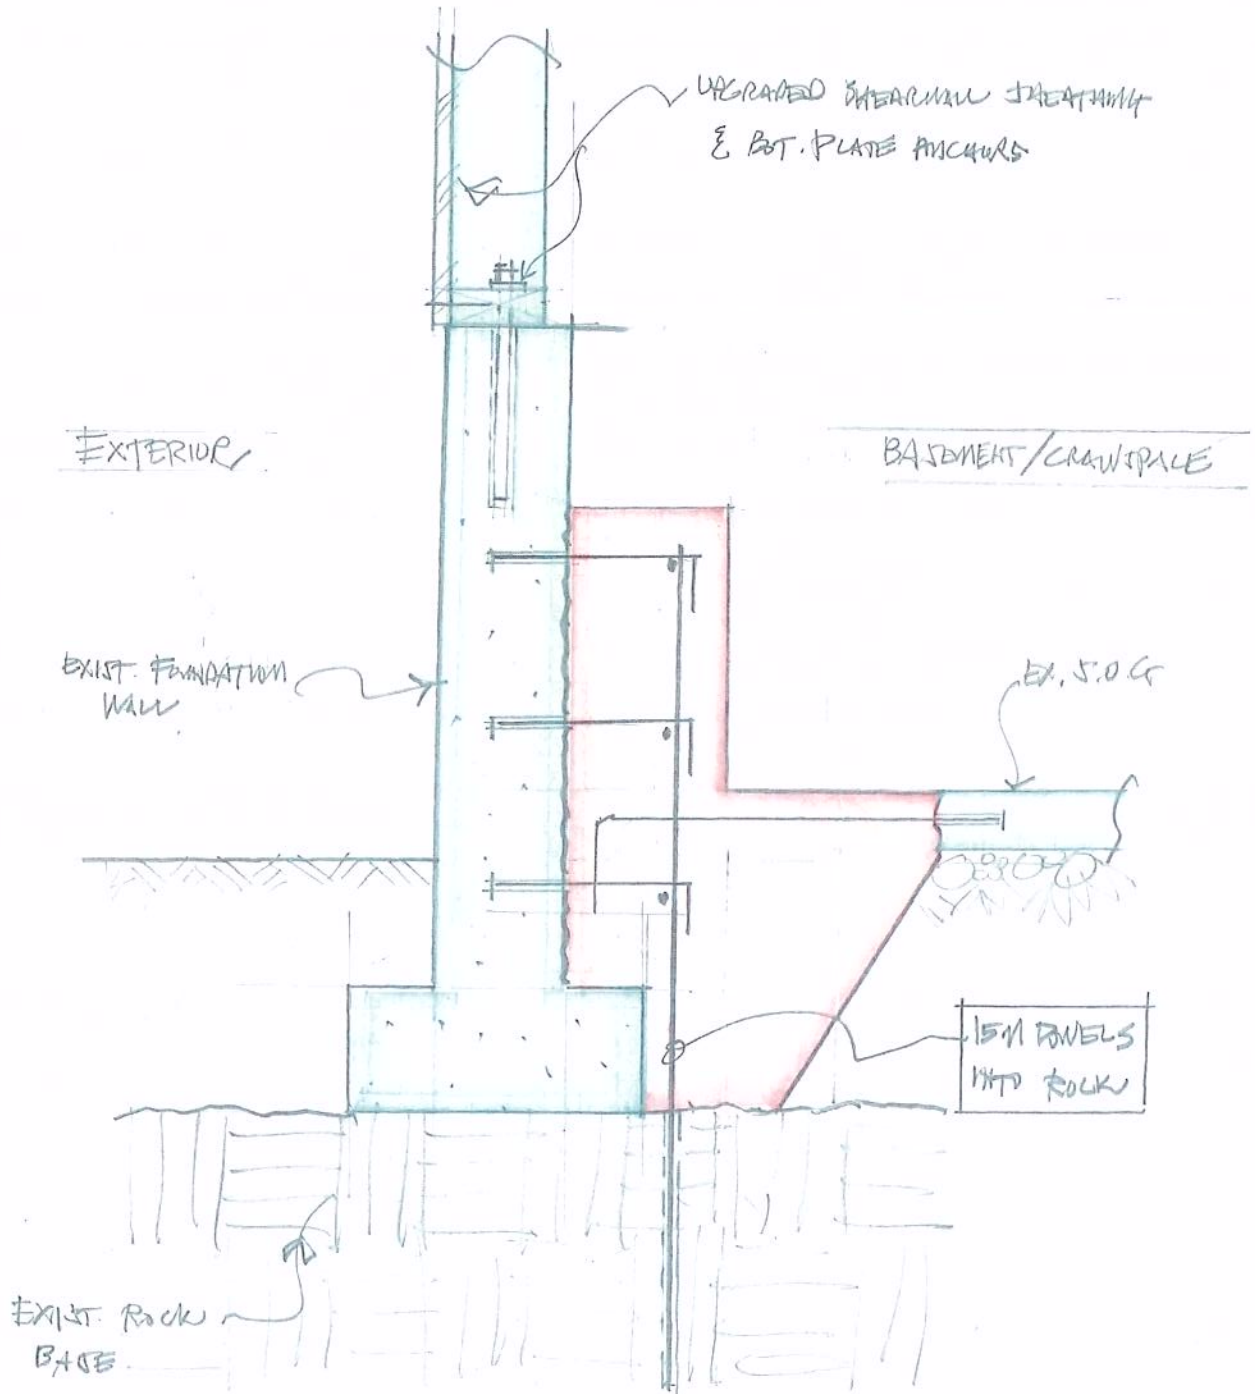 UPGRADED SHEARWALL SHEATHING
& BOT. PLATE ANCHORS
EXTERIOR
BASEMENT/CRAWSPACE
EXIST. FOUNDATION
WALL
EX. S.O.G
15M DOWELS
INTO ROCK
EXIST. ROCK
BASE